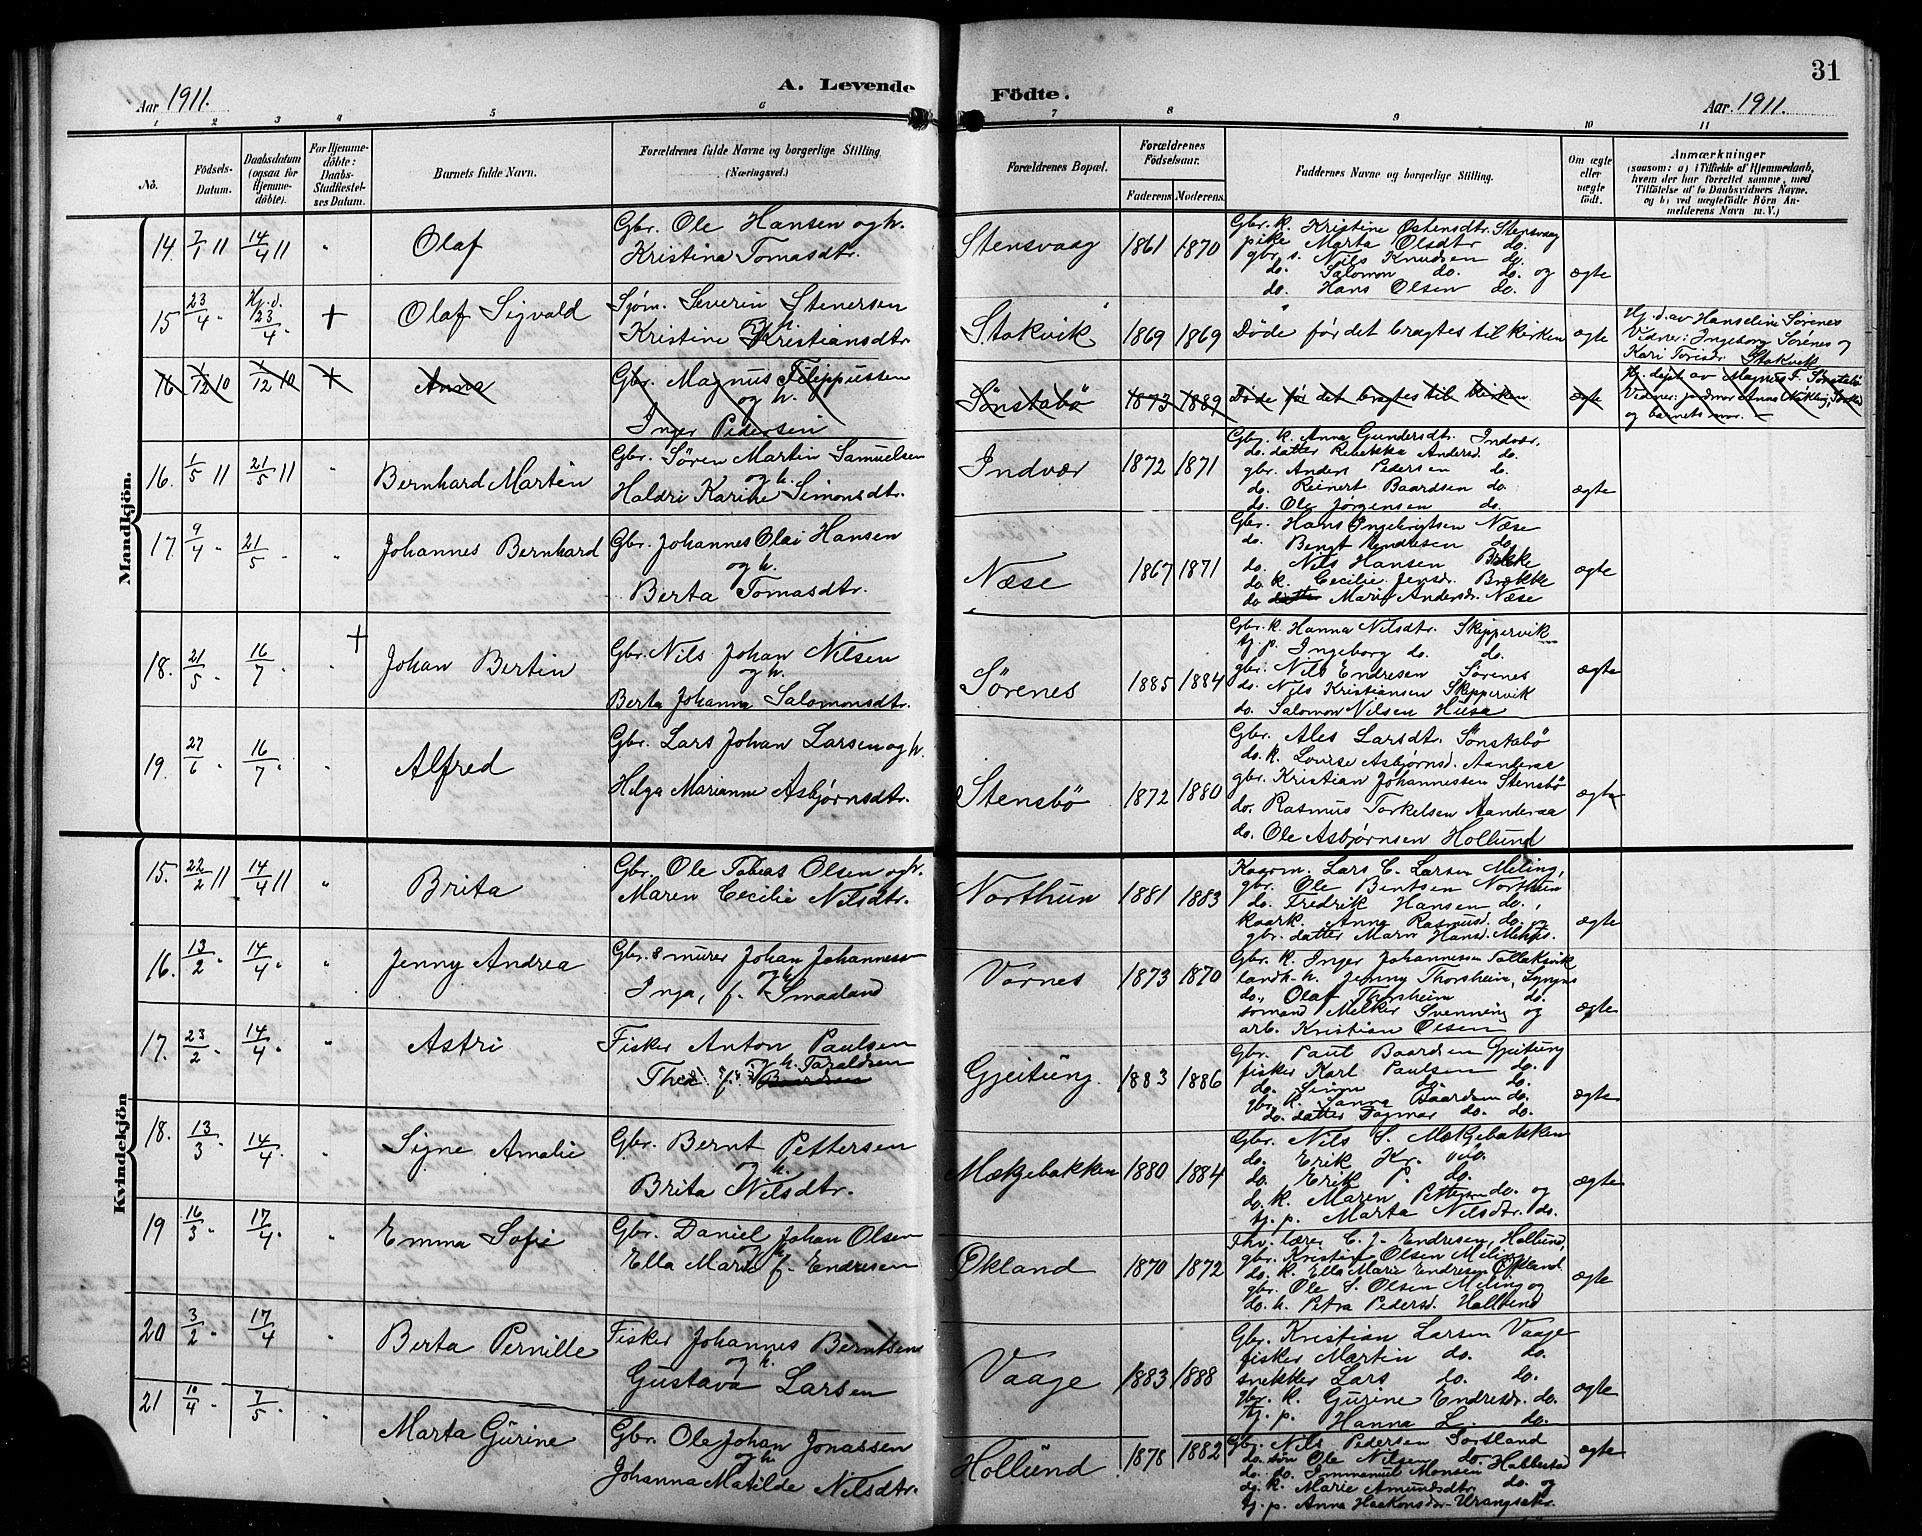 31
Aar 1911.
A. Levende Födte.
Aar 1911.
1 2 3 4 5 6 7 8 9 10 11
No.
Födsels-Datum.
Daabsdatum (ogsaa for Hjemmedöbte).
For Hjemmedöbte: Daabs-Stadfæstelses Datum.
Barnets fulde Navn.
Forældrenes fulde Navne og borgerlige Stilling. (Næringsvei.)
Forældrenes Bopæl.
Forældrenes Födselsaar.
Faderens. Moderens.
Faddernes Navne og borgerlige Stilling.
Om ægte eller uægte födt.
Anmærkninger
(saasom: a) i Tilfælde af Hjemmedaab,
hvem der har forrettet samme, med
Tilföielse af to Daabsvidners Navne.
og b) ved uægtefödte Börn An-
melderens Navn m. V.)
Mandkjön.
14. 7/1 11 14/4 11 " Olaf
Gbr. Ole Hansen og h.
Kristina Tomasdtr.
Stensvaag 1861 1870
Gbr. k. Kristine Østensdtr. Stensvaag
pike Marta Olsdtr do.
gbr. s. Nils Knudsen do.
do. Salomon do. do. og
do. Hans Olsen do.
ægte
15 23/4 " Hj.d. 23/4 " + Olaf Sigvald
Sjøm. Severin Stenersen
og h.
Kristine Kristiansdtr.
Stokvik 1869 1869
Døde før det bragtes til kirken
ægte
Hj. d. av Hanseline Sørenes
Vidner: Ingeborg Sørenes og
Kari Torisdr. Stokvik
16 1/12 10 1/12 10 + Anna
Gbr. Magnus Filippussen
og h.
Inger Pedersen
Sønstabø 1873 1889
Døde før det bragtes til kirken
ægte
Hj. døpt av Magnus F. Sønstabø
Vidner: jordmor Anna
og barnets mor.
16. 1/5 11 21/5 11 " Bernhard Martin
Gbr. Søren Martin Samuelsen
og h.
Haldri Karine Simonsdtr.
Indvær 1872 1871
Gbr. k. Anna Gundersdtr. Indvær.
do. datter Rebekka Andersd. do.
gbr. Anders Pedersen do.
do. Reinert Baardsen do.
do. Ole Jørgensen do.
ægte
17. 9/4 " 21/5 " " Johannes Bernhard
Gbr. Johannes Olai Hansen
og h.
Berta Tomasdtr.
Næse 1867 1871
Gbr. Hans Ingebrigtsen Næse
do. Bengt Endresen do.
do. Nils Hansen Bække
do. k. Cecilie Jensdr. Brække
do. datter Marie Andersdr. Næse
ægte
18. 21/5 " 16/7 " " + Johan Bertin
Gbr. Nils Johan Nilsen
og h.
Berta Johanna Salomonsdtr.
Sørenes 1885 1884
Gbr. k. Hanna Nilsdtr. Skippervik
tj. p. Ingeborg do. do.
gbr. Nils Endresen Sørenes
do. Nils Kristiansen Skippervik
do. Salomon Nilsen Husa
ægte
19. 27/6 " 16/7 " " Alfred
Gbr. Lars Johan Larsen og h.
Helga Marianne Asbjørnsdtr.
Stensbø 1872 1880
Gbr. Ales Larsdtr. Sønstabø
do. k. Lourse Asbjørnsd. Aanderaa
gbr. Kristian Johannessen Stensbø
do. Rasmus Torkelsen Aanderaa
do. Ole Asbjørnsen Hollund
ægte
Kvindekjön
15. 22/2 11 14/4 11 " Brita
Gbr. Ole Tobias Olsen og h.
Maren Cecilie Nilsdtr.
Northun 1881 1883
Kaarm. Lars C. Larsen Meling,
gbr. Ole Bentsen Northun
do. Fredrik Hansen do.,
kaark. Anna Rasmusd. do. og
gbr. datter Marie Hansd.
ægte
16. 13/2 " 14/4 " " Jenny Andrea
Gbr. & murer Johan Johannessen
og h.
Inga, f. Smaaland
Vornes 1873 1870
Gbr. k. Inger Johannessen Tollaksvik
landh. h. Jenny Thorsheim,
do., Olaf Thorsheim do.
sømand Melker Svenning og
arb. Kristian Olsen
ægte
17. 23/2 " 14/4 " " Astri
Fisker Anton Paulsen
og h.
Thea f. Baardsen Taraldsen
Gjeitung. 1883 1886
Gbr. Paul Baardsen Gjeitung
fisker Karl Paulsen do.
do. Simon do. do.
gbr. k. Sanna Baardsen do.
do. datter Dagmar do. do.
ægte
18. 13/3 " 14/4 " " Signe Amalie
Gbr. Bernt Pettersen
og h.
Brita Nilsdtr.
Mækjebakken 1880 1884
Gbr. Nils S. Mækjebakken
do. Erik Kr. do.
do. Erik P. do.
do. k. Maren Pettersen do. og
tj. p. Marta Nilsdtr. do.
ægte
19 16/3 " 17/4 " " Emma Sofie
Gbr. Daniel Johan Olsen
og h.
Ella Marie f. Endresen
Økland 1870 1872
Fhv. lærer C. J. Endresen, Hollund,
gbr. Kristine Olsen Meling
do. k. Ella Marie Endresen Økland
gbr. Ole S. Olsen Meling og
do. h. Petra Pedersd. Hollund
ægte
20 3/2 " 17/4 " Berta Pernille
Fisker Johannes Berntsen
og h.
Gustava Larsen
Vaage 1883 1888
Gbr. Kristian Larsen Vaage
fisker Martin do. do.
snekker Lars do. do.
gbr. k. Gurine Endresdr. do.
tj. p. Hanna L. do.
ægte
21 10/4 " 7/5 " " Marta Gurine
Gbr. Ole Johan Jonassen
og h.
Johanna Matilde Nilsdtr.
Hollund 1878 1882
Gbr. Nils Pedersen Sortland
do. søn Ole Nilsen do.
do. do. Immanuel Monsen Habbestad
do. k. Marie Amundsdtr. do. og
tj. p. Anna Haakonsdtr. Vrangsæter.
ægte